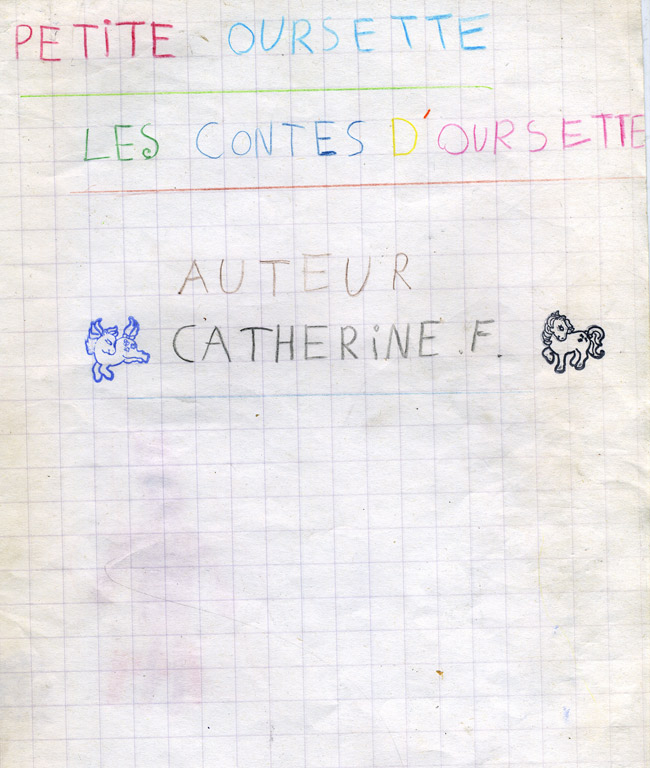 PETiTE OURSETTE
LES CONTES D'OURSETTE
AUTEUR
CATHERiNE.F.